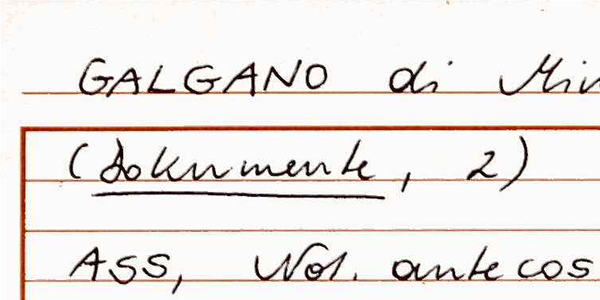 GALGANO di Min
(Dokumente, 2)
ASS, Not. antecos